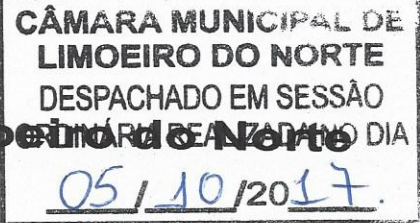 CÂMARA MUNICIPAL DE
LIMOEIRO DO NORTE
DESPACHADO EM SESSÃO
ORDINÁRIA REALIZADA NO DIA
eiro do Norte
05 / 10 /2017.